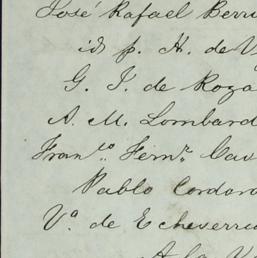 José Rafael Berri
id p. H. de V
G. I. de Roza
A. M. Lombard
Franco. Fernz. Cas
Pablo Cordov
Va. de Echeverri
A la V